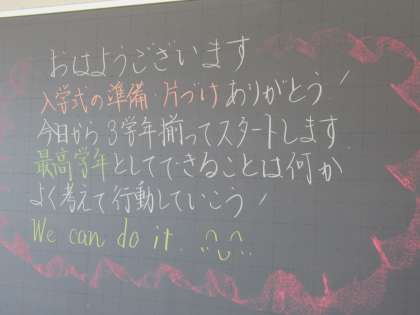 おはようございます
入学式の準備・片づけありがとう!
今日から3学年揃ってスタートします
最高学年としてできることは何か
よく考えて行動していこう!
We can do it.